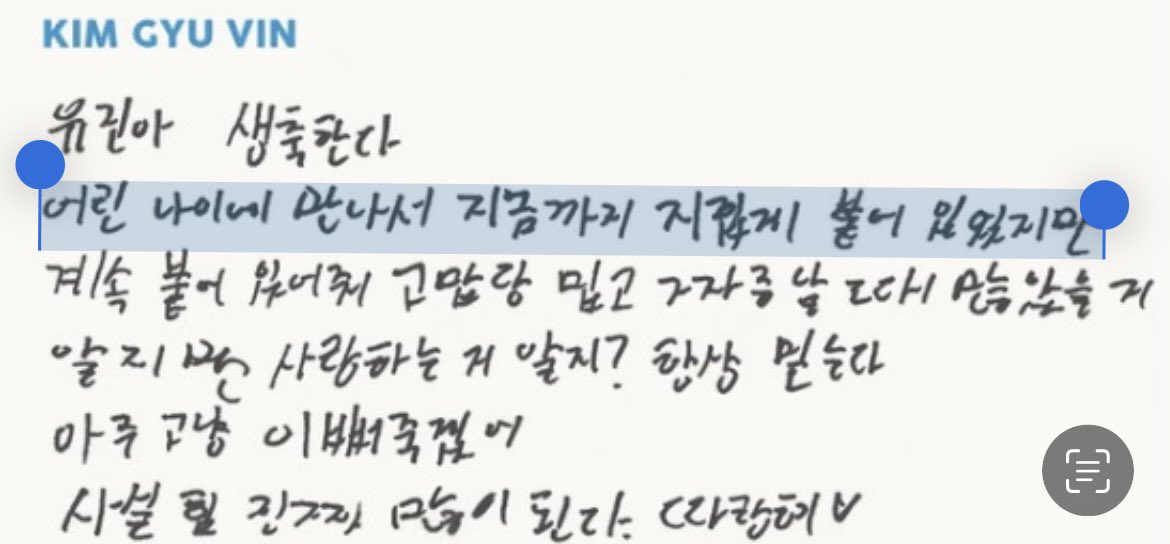 KIM GYU VIN
유진아 생축한다
어린 나이에 만나서 지금까지 지겹게 붙어 있었지만
계속 붙어 있어줘 고맙당 밉고 그자주 날 또다시 않을 거
알지만 사랑하는 거 알지? 항상 믿는다
아주 고냥 이뻐죽겠어
시설 될 진짜 많이 된다. 따랑해